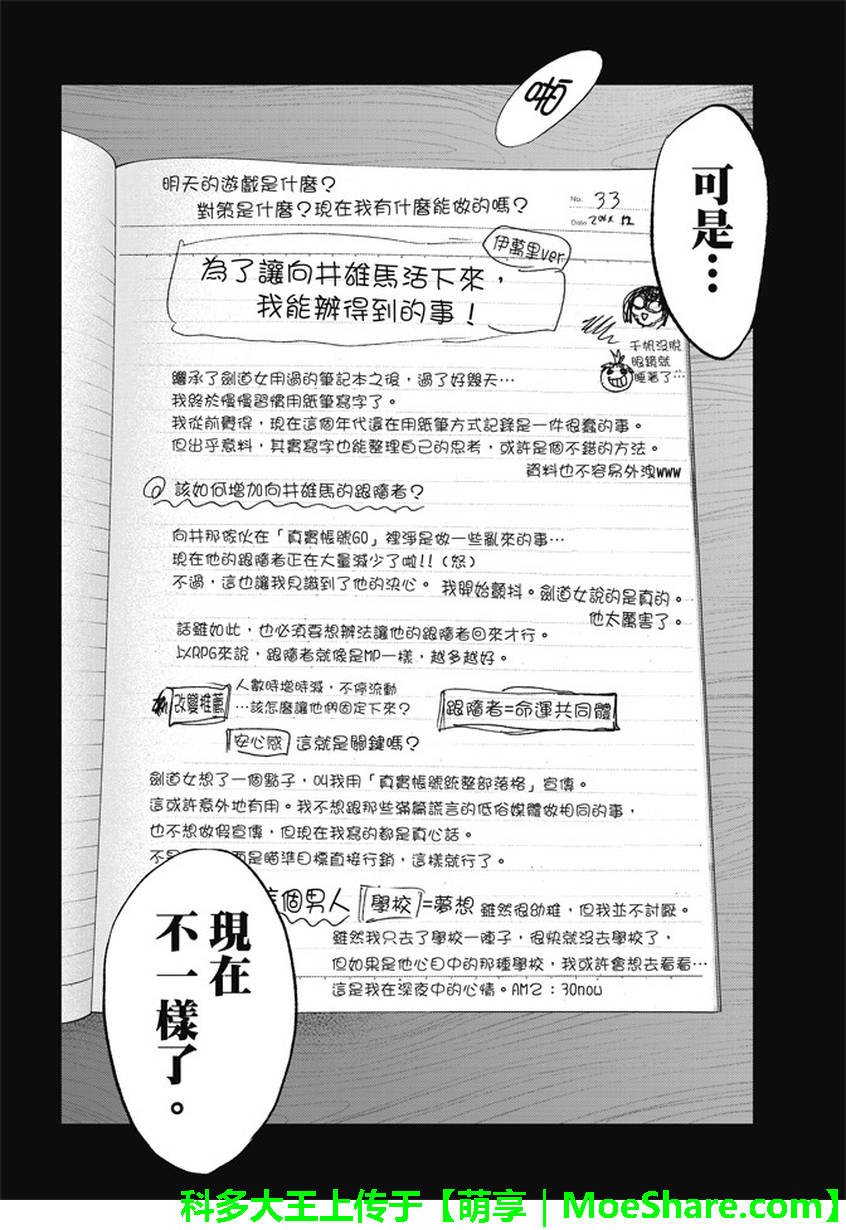 啪
可是…
明天的遊戲是什麼？
對策是什麼？現在我有什麼能做的嗎？
No. 33
Date 20XX 12
伊萬里ver.
為了讓向井雄馬活下來，
我能辦得到的事！
千帆沒脫
眼鏡就
睡著了…
繼承了劍道女用過的筆記本之後，過了好幾天…
我終於慢慢習慣用紙筆寫字了。
我從前覺得，現在這個年代還在用紙筆方式記錄是一件很蠢的事。
但出乎意料，其實寫字也能整理自己的思考，或許是個不錯的方法。
資料也不容易外洩www
該如何增加向井雄馬的跟隨者？
向井那傢伙在「真實帳號GO」裡淨是做一些亂來的事…
現在他的跟隨者正在大量減少了啦!!（怒）
不過，這也讓我見識到了他的決心。 我開始顫抖。劍道女說的是真的。
他太厲害了。
話雖如此，也必須要想辦法讓他的跟隨者回來才行。
以RPG來說，跟隨者就像是MP一樣，越多越好。
改變推薦
人數時增時減，不停流動
…該怎麼讓他們固定下來？
跟隨者=命運共同體
安心感 這就是關鍵嗎？
劍道女想了一個點子，叫我用「真實帳號統整部落格」宣傳。
這或許意外地有用。我不想跟那些滿篇謊言的低俗媒體做相同的事，
也不想做假宣傳，但現在我寫的都是真心話。
不是 而是瞄準目標直接行銷，這樣就行了。
這個男人 學校=夢想 雖然很幼稚，但我並不討厭。
雖然我只去了學校一陣子，很快就沒去學校了，
但如果是他心目中的那種學校，我或許會想去看看…
這是我在深夜中的心情。AM2：30now
現在
不一樣了。
科多大王上传于【萌享｜MoeShare.com】